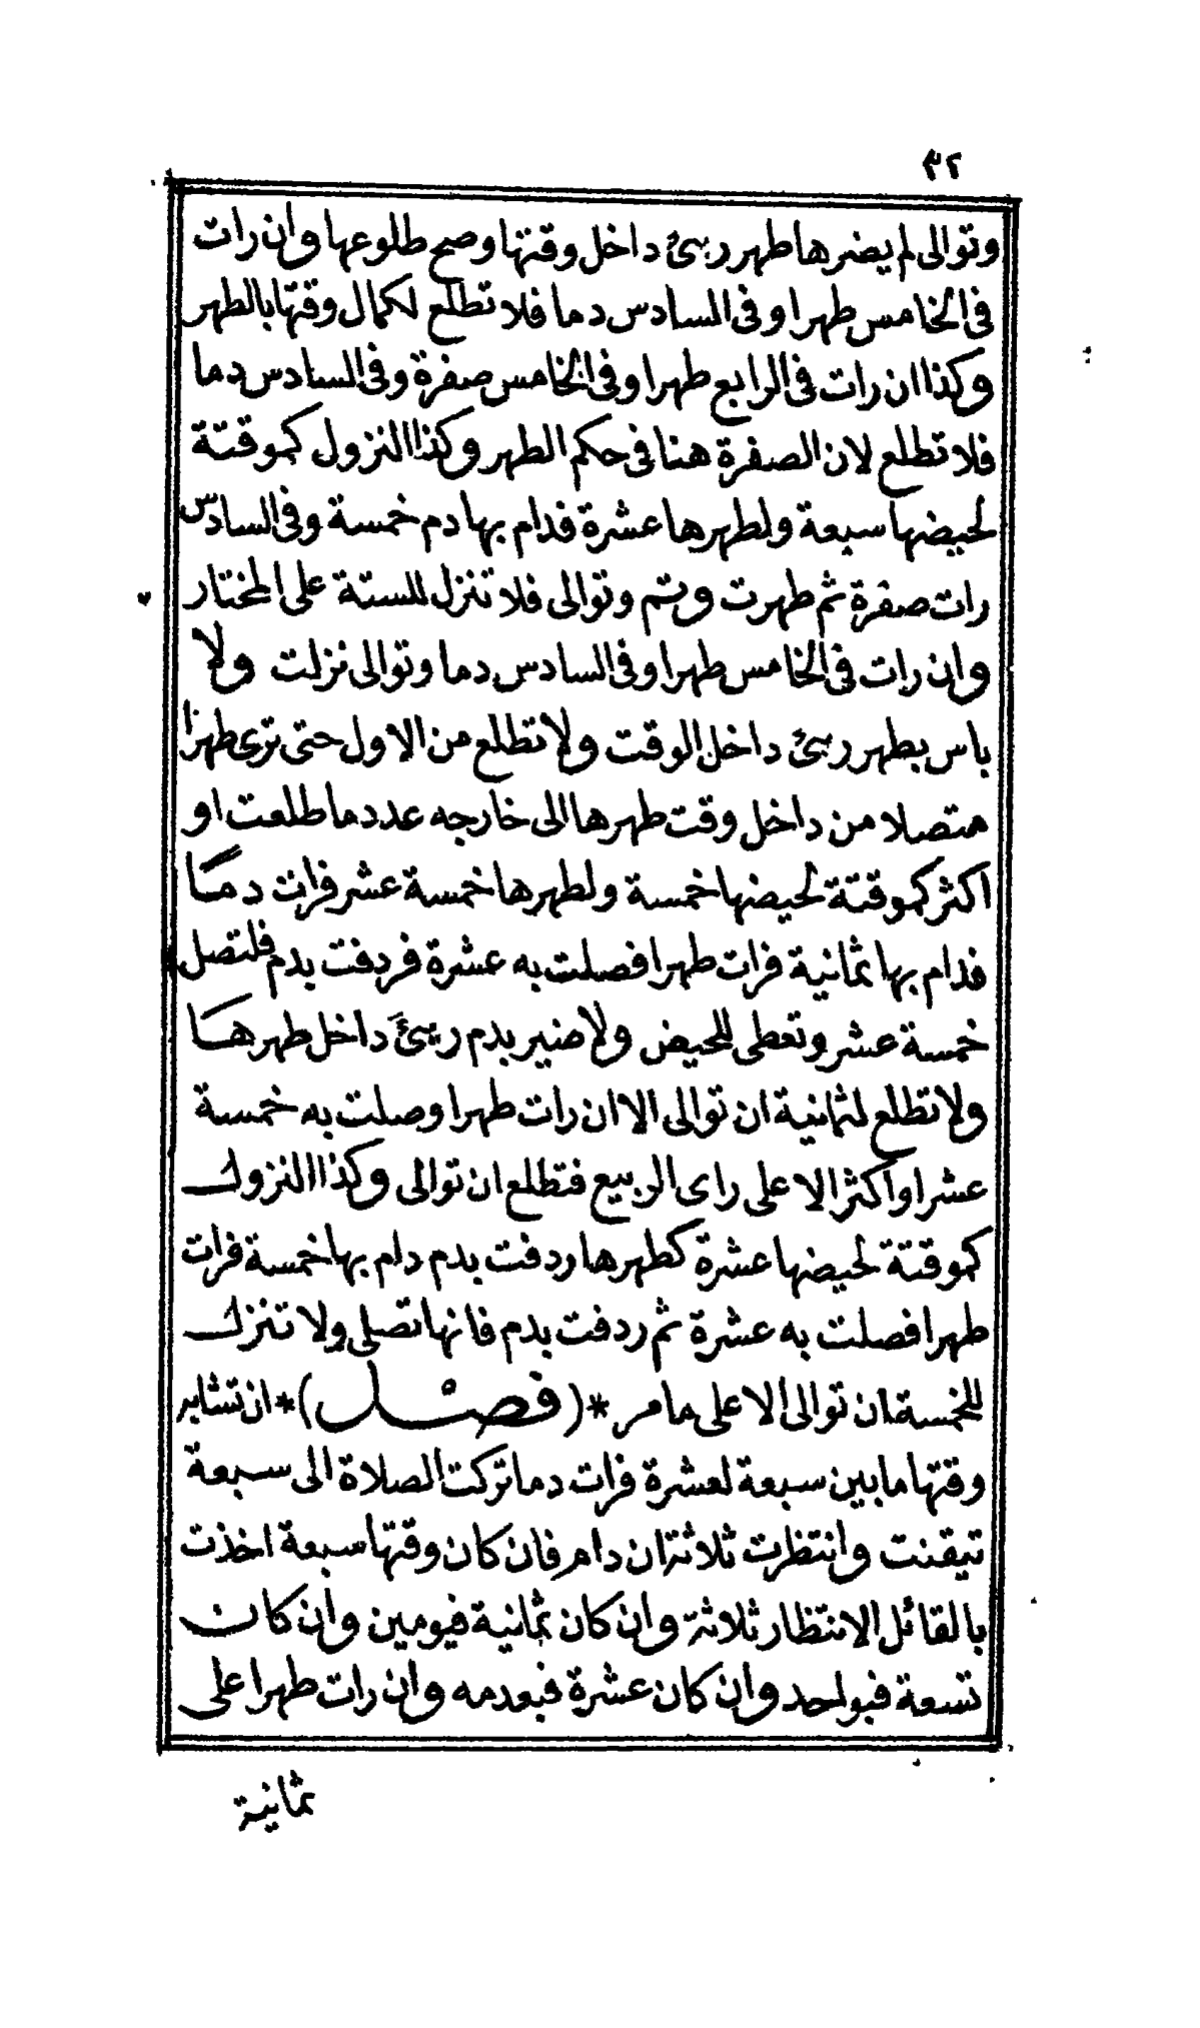 ٣٢
وتوالى لم يضرها طهر ربئ داخل وقتها وصح طلوعها وان رات
فى الخامس طهرا وفى السادس دما فلا تطلع لكمال وقتها بالطهر
وكذا ان رات فى الرابع طهرا وفى الخامس صفرة وفى السادس دما
فلا تطلع لان الصفرة هنا فى حكم الطهر وكذا النزول كموقتة
لحيضها سبعة ولطهرها عشرة فدام بها دم خمسة وفى السادس
رات صفرة ثم طهرت وتم وتوالى فلا تنزل للستة على المختار
وان رات فى الخامس طهرا وفى السادس دما وتوالى نزلت ولا
باس بطهر ربئ داخل الوقت ولا تطلع من الاول حتى ترى طهرا
متصلا من داخل وقت طهرها الى خارجه عدد ما طلعت او
اكثر كموقتة لحيضها خمسة ولطهرها خمسة عشر فرات دما
فدام بها ثمانية فرات طهرا فصلت به عشرة فردفت بدم فلتصل
خمسة عشر وتعطى للحيض ولا ضير بدم ربئَ داخل طهرها
ولا تطلع لثمانية ان توالى الا ان رات طهرا وصلت به خمسة
عشر او اكثر الا على راى الربيع فتطلع ان توالى وكذا النزول
كموقتة لحيضها عشرة كطهرها ردفت بدم دام بها خمسة فرات
طهرا فصلت به عشرة ثم ردفت بدم فانها تصلى ولا تنزل
للخمسة ان توالى الا على ما مر *(فصل)* ان تشابر
وقتها ما بين سبعة لعشرة فرات دما تركت الصلاة الى سبعة
تيقنت وانتظرت ثلاثة ان دام فان كان وقتها سبعة اخذت
بالقائل الانتظار ثلاثة وان كان ثمانية فيومين وان كان
تسعة فبواحد وان كان عشرة فبعدمه وان رات طهرا على
ثمانية